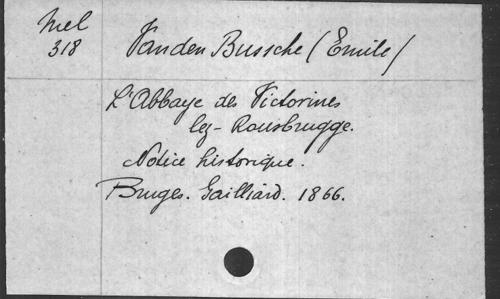 Mel
318
Vanden Bussche (Emile)
L'Abbaye des Victorines
lez-Rousbrugge.
Notice historique.
Bruges. Gailliard. 1866.